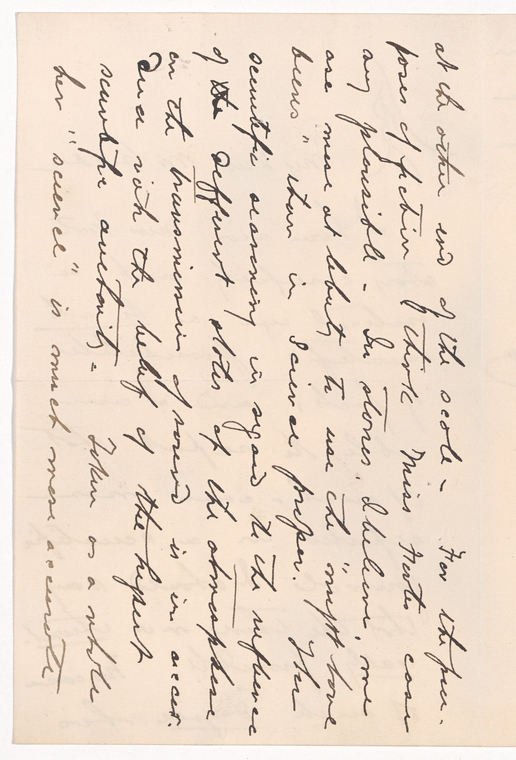 at the other end of the scale – For the pur-
poses of fiction I think Miss Fates case
any plausible – In stories, I believe, we
are more at liberty to use the "might have
beens" than in Science proper. Her
scientific reasoning in regard to the influence
of the different states of the atmosphere
on the transmission of sound is in accor-
dance with the belief of the highest
scientific authority – Taken as a whole
her "science" is much more accurate